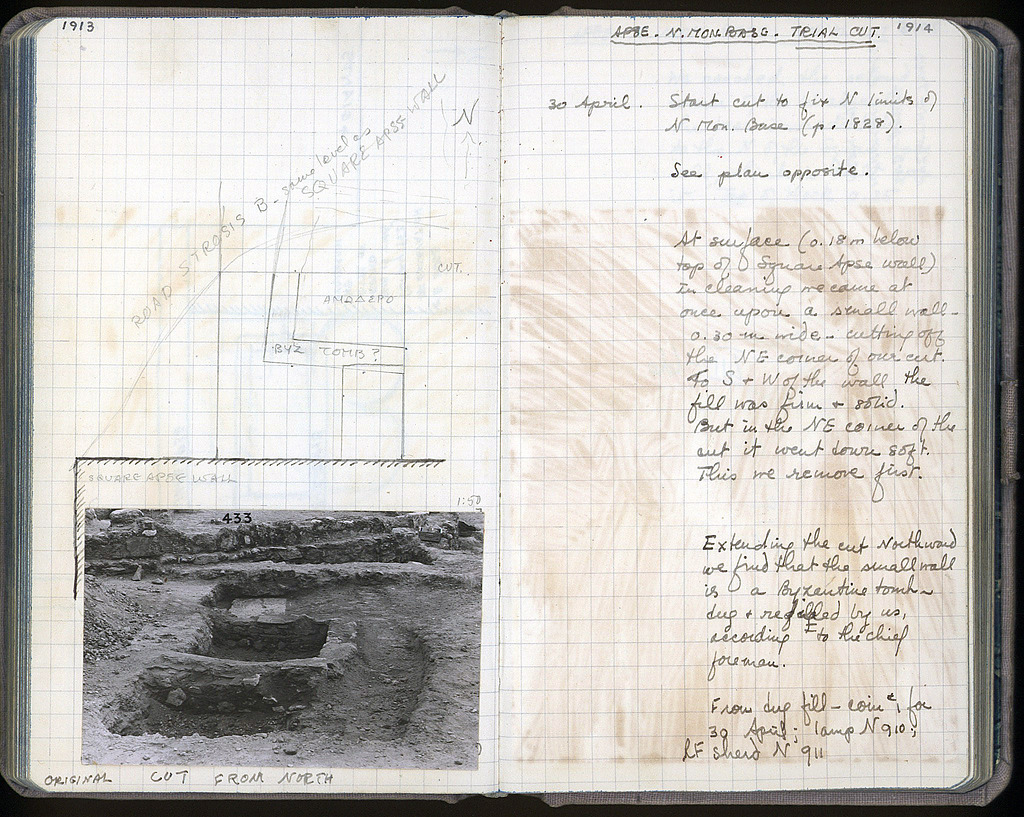 1913
N
ROAD STROSIS B - same level as
SQUARE APSE WALL
CUT.
ΑΜΩΔΕΡΟ
BYZ TOMB?
SQUARE APSE WALL
1:50
433
ORIGINAL CUT FROM NORTH
APSE. N. MON BASE. TRIAL CUT. 1914
30 April. Start cut to fix N limits of
N Mon. Base (p. 1828).
See plan opposite.
At surface (0.18 m below
top of Square Apse wall)
In cleaning we came at
once upon a small wall -
0.30 m wide - cutting off
the NE corner of our cut.
To S + W of the wall the
fill was firm + solid.
But in the NE corner of the
cut it went down soft.
This we remove first.
Extending the cut Northward
we find that the small wall
is a Byzantine tomb -
dug + refilled by us,
according to the chief
foreman.
From dug fill - coin 1, for
30 April; lamp N 910;
RF sherd N 911